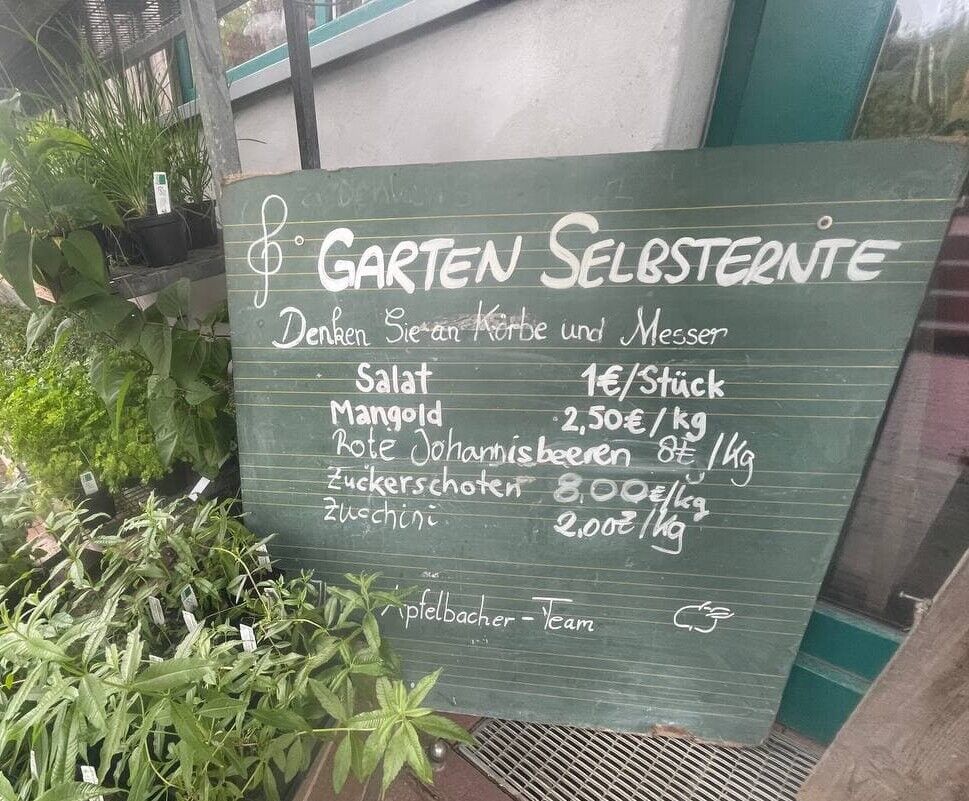 GARTEN SELBSTERNTE
Denken Sie an Körbe und Messer
Salat 1€/Stück
Mangold 2,50€/kg
Rote Johannisbeeren 8€/Kg
Zuckerschoten 8,00€/kg
Zucchini 2,00€/kg
Apfelbacher-Team